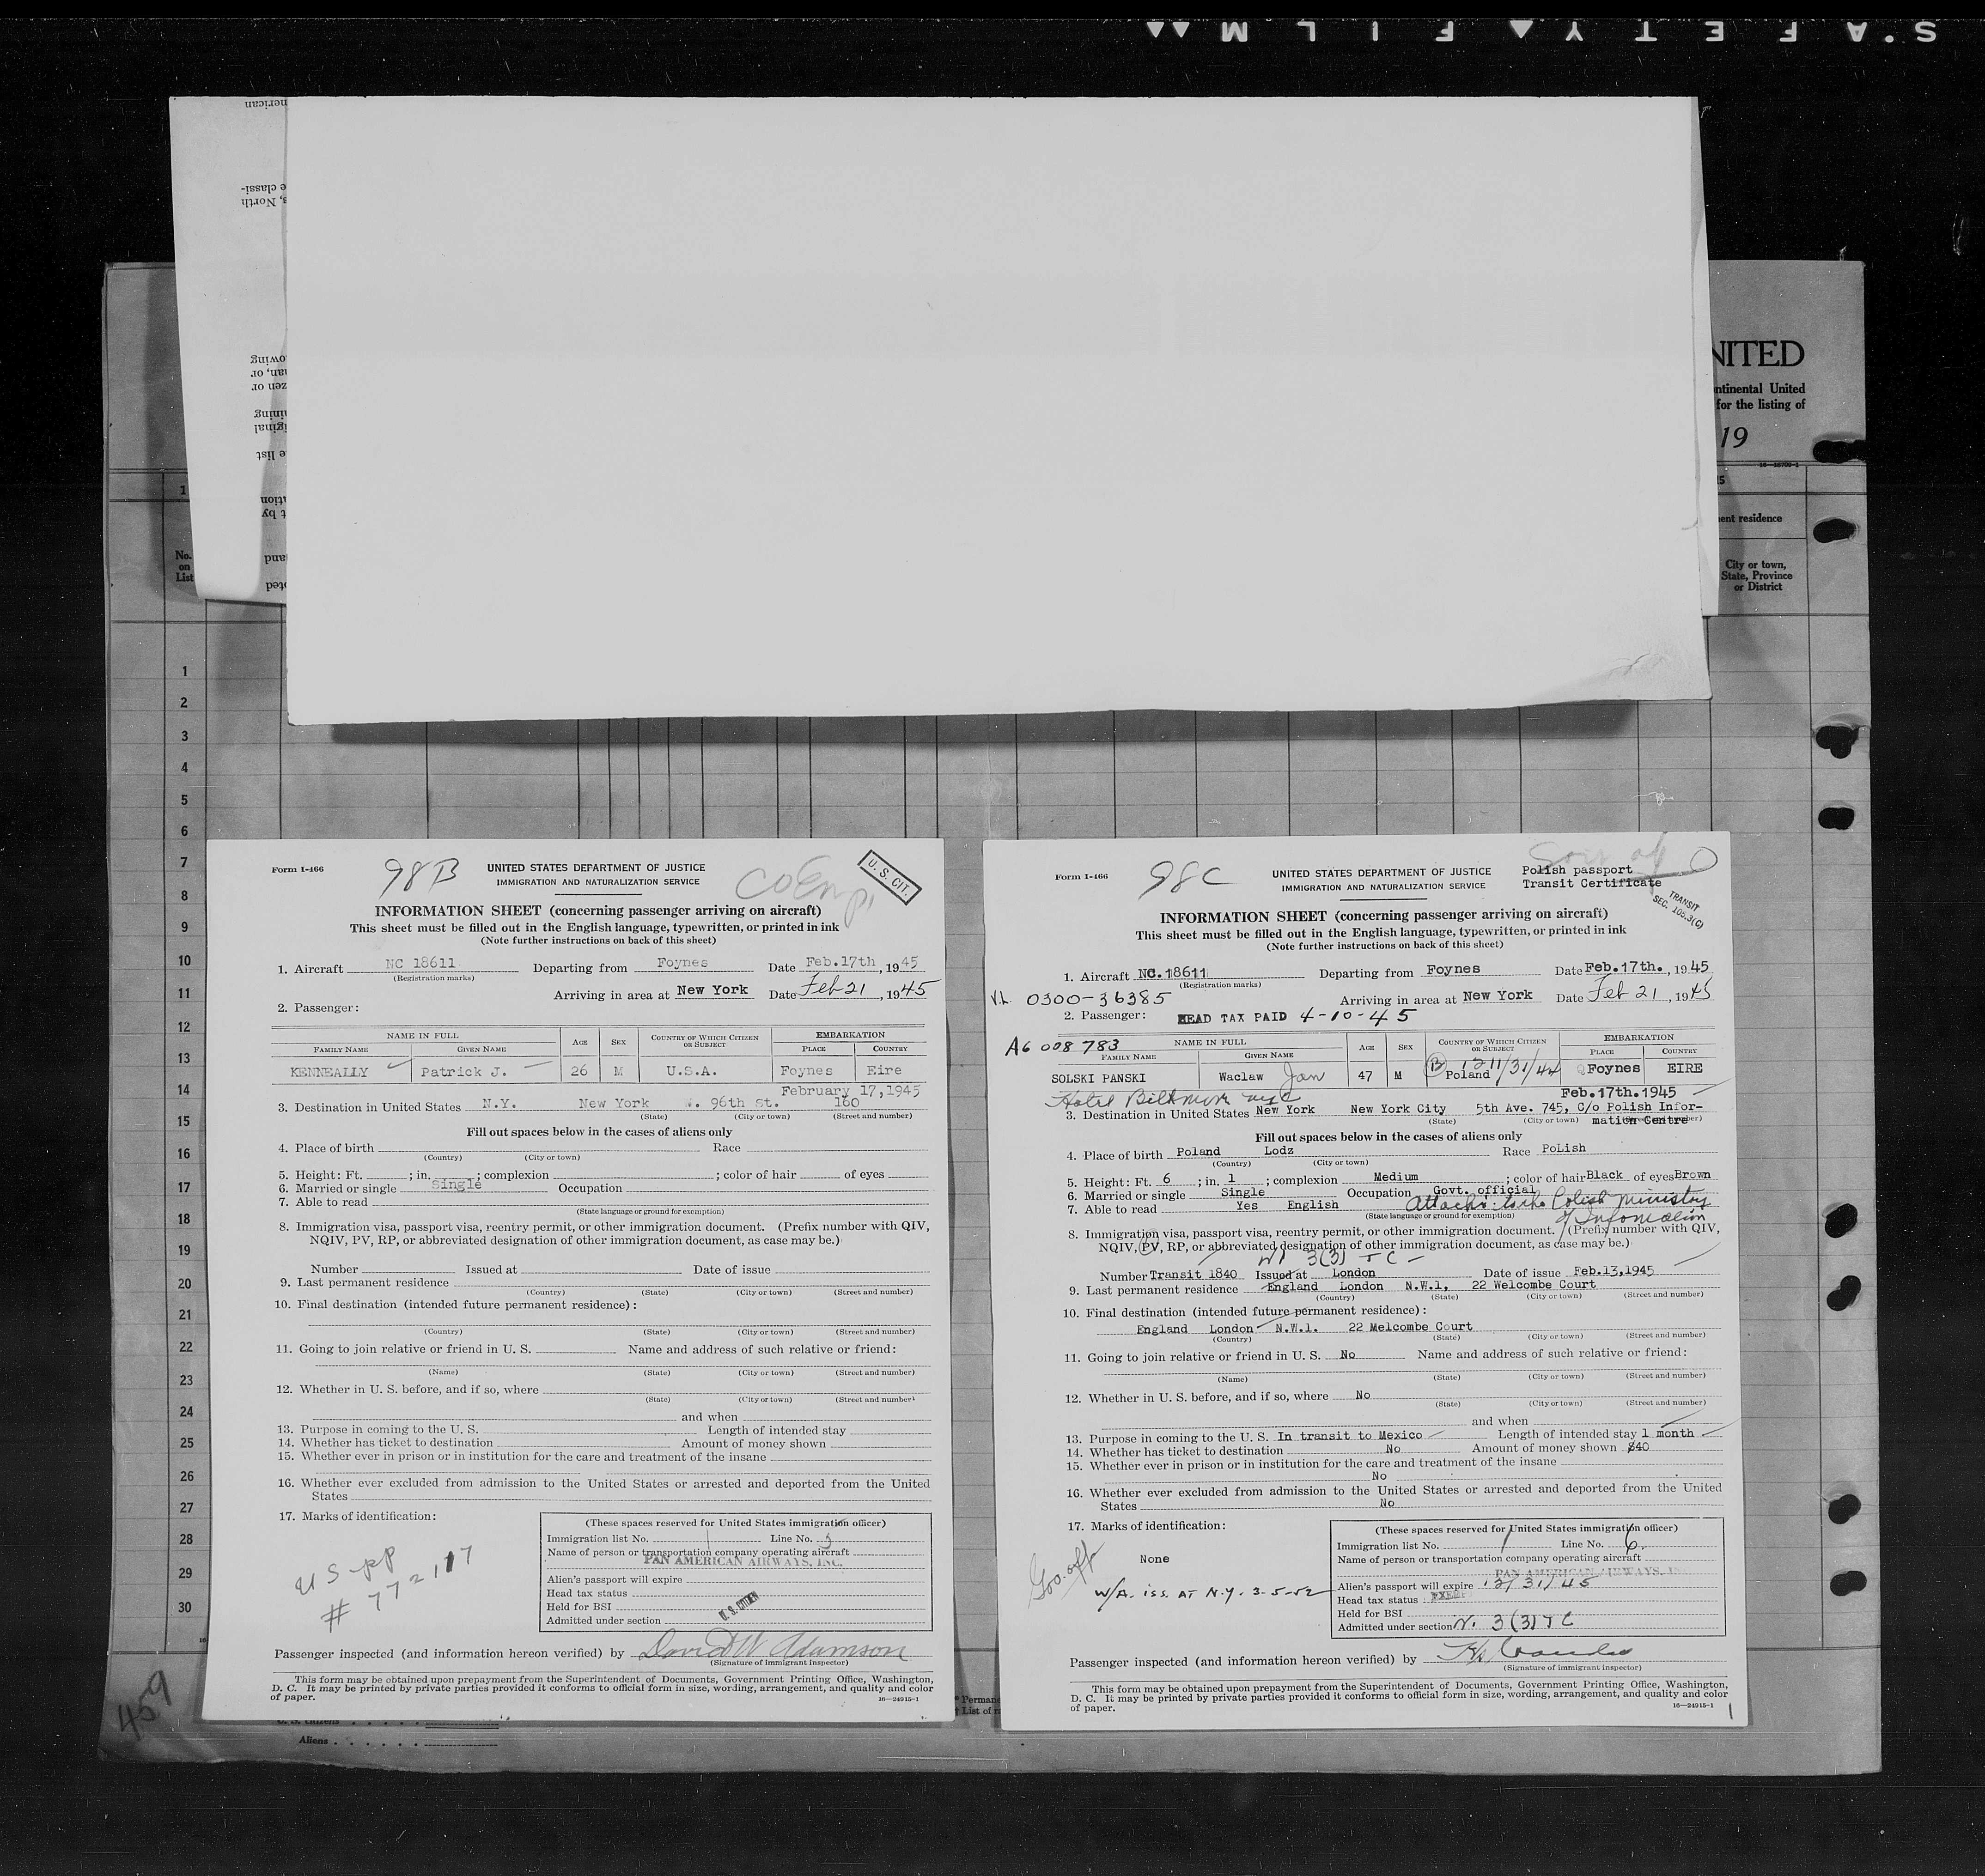 S.AFETY▲FILM▲▲
nerican
e classi-
s, North
owing
an, or
zen or
ining
iginal
e list
ation
t by
and
oted
NITED
ontinental United
for the listing of
19
ent residence
City or town,
State, Province
or District
1
No.
on
List
1
2
3
4
5
6
7
8
9
10
11
12
13
14
15
16
17
18
19
20
21
22
23
24
25
26
27
28
29
30
459
Aliens
Form I-466
98B
UNITED STATES DEPARTMENT OF JUSTICE
IMMIGRATION AND NATURALIZATION SERVICE
CoEmp.
U. S. CIT.
INFORMATION SHEET (concerning passenger arriving on aircraft)
This sheet must be filled out in the English language, typewritten, or printed in ink
(Note further instructions on back of this sheet)
1. Aircraft NC 18611 Departing from Foynes Date Feb.17th, 1945
(Registration marks)
Arriving in area at New York Date Feb 21, 1945
2. Passenger:
NAME IN FULL AGE SEX COUNTRY OF WHICH CITIZEN OR SUBJECT EMBARKATION
FAMILY NAME GIVEN NAME PLACE COUNTRY
KENNEALLY Patrick J. 26 M U.S.A. Foynes Eire
February 17,1945
3. Destination in United States N.Y. New York W. 96th St. 160
(State) (City or town) (Street and number)
Fill out spaces below in the cases of aliens only
4. Place of birth Race
(Country) (City or town)
5. Height: Ft. ; in. ; complexion ; color of hair of eyes
6. Married or single Single Occupation
7. Able to read
(State language or ground for exemption)
8. Immigration visa, passport visa, reentry permit, or other immigration document. (Prefix number with QIV,
NQIV, PV, RP, or abbreviated designation of other immigration document, as case may be.)
Number Issued at Date of issue
9. Last permanent residence
(Country) (State) (City or town) (Street and number)
10. Final destination (intended future permanent residence):
(Country) (State) (City or town) (Street and number)
11. Going to join relative or friend in U. S. Name and address of such relative or friend:
(Name) (State) (City or town) (Street and number)
12. Whether in U. S. before, and if so, where
(State) (City or town) (Street and number)
and when
13. Purpose in coming to the U. S. Length of intended stay
14. Whether has ticket to destination Amount of money shown
15. Whether ever in prison or in institution for the care and treatment of the insane
16. Whether ever excluded from admission to the United States or arrested and deported from the United
States
17. Marks of identification:
US-pp
# 772117
(These spaces reserved for United States immigration officer)
Immigration list No. 1 Line No. 5
Name of person or transportation company operating aircraft
PAN AMERICAN AIRWAYS, INC.
Alien's passport will expire
Head tax status
Held for BSI
Admitted under section
U. S. CITIZEN
Passenger inspected (and information hereon verified) by David W Adamson
(Signature of immigrant inspector)
This form may be obtained upon prepayment from the Superintendent of Documents, Government Printing Office, Washington,
D. C. It may be printed by private parties provided it conforms to official form in size, wording, arrangement, and quality and color
of paper.
16—24915-1
Form I-466
98C
UNITED STATES DEPARTMENT OF JUSTICE
IMMIGRATION AND NATURALIZATION SERVICE
Polish passport
Transit Certificate
TRANSIT
SEC. 105.3(C)
INFORMATION SHEET (concerning passenger arriving on aircraft)
This sheet must be filled out in the English language, typewritten, or printed in ink
(Note further instructions on back of this sheet)
1. Aircraft NC.18611 Departing from Foynes Date Feb.17th., 1945
(Registration marks)
V.L. 0300-36385
Arriving in area at New York Date Feb 21, 1945
2. Passenger: HEAD TAX PAID 4-10-45
A6 008 783
NAME IN FULL AGE SEX COUNTRY OF WHICH CITIZEN OR SUBJECT EMBARKATION
FAMILY NAME GIVEN NAME PLACE COUNTRY
SOLSKI PANSKI Waclaw Jan 47 M Poland Foynes EIRE
Feb.17th.1945
Hotel Biltmore nyc
3. Destination in United States New York New York City 5th Ave. 745, C/o Polish Infor-
(State) (City or town) mation Centre
Fill out spaces below in the cases of aliens only
4. Place of birth Poland Lodz Race PoLish
(Country) (City or town)
5. Height: Ft. 6 ; in. 1 ; complexion Medium ; color of hair Black of eyes Brown
6. Married or single Single Occupation Govt. official
7. Able to read Yes English Attache to the Polish Ministry
(State language or ground for exemption) of Information
8. Immigration visa, passport visa, reentry permit, or other immigration document. (Prefix number with QIV,
NQIV, PV, RP, or abbreviated designation of other immigration document, as case may be.)
3(3) TC
Number Transit 1840 Issued at London Date of issue Feb.13,1945
9. Last permanent residence England London N.W.1, 22 Welcombe Court
(Country) (State) (City or town) (Street and number)
10. Final destination (intended future permanent residence):
England London N.W.1. 22 Melcombe Court
(Country) (State) (City or town) (Street and number)
11. Going to join relative or friend in U. S. No Name and address of such relative or friend:
(Name) (State) (City or town) (Street and number)
12. Whether in U. S. before, and if so, where No
(State) (City or town) (Street and number)
and when
13. Purpose in coming to the U. S. In transit to Mexico Length of intended stay 1 month
14. Whether has ticket to destination No Amount of money shown $40
15. Whether ever in prison or in institution for the care and treatment of the insane
No
16. Whether ever excluded from admission to the United States or arrested and deported from the United
States No
17. Marks of identification:
None
Gov. off
W/A. iss. AT N.Y. 3-5-52
(These spaces reserved for United States immigration officer)
Immigration list No. 1 Line No. 6.
Name of person or transportation company operating aircraft
PAN AMERICAN AIRWAYS, INC.
Alien's passport will expire 12/31/45
Head tax status
Held for BSI
Admitted under section 3(3) TC
Passenger inspected (and information hereon verified) by
(Signature of immigrant inspector)
This form may be obtained upon prepayment from the Superintendent of Documents, Government Printing Office, Washington,
D. C. It may be printed by private parties provided it conforms to official form in size, wording, arrangement, and quality and color
of paper.
16—24915-1